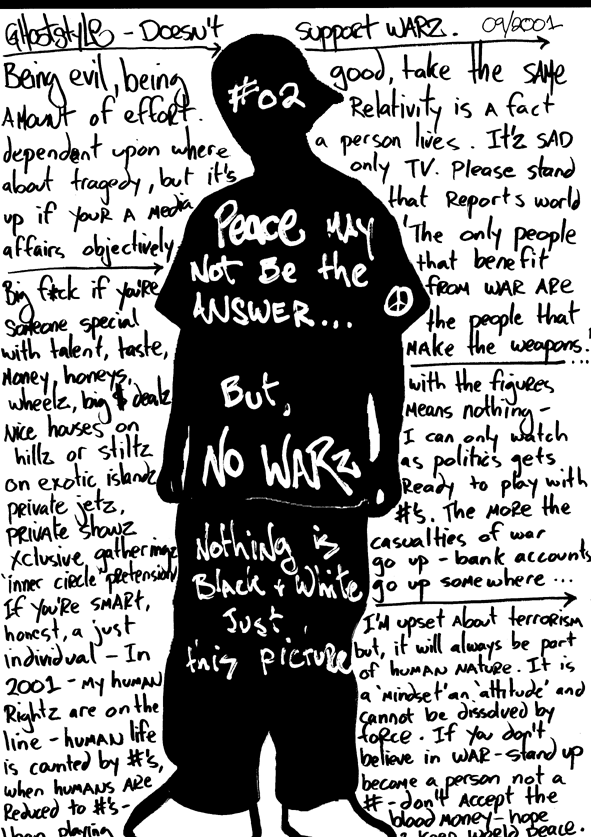 GHOSTSTYLE - DOESN'T SUPPORT WARZ. 09/2001
Being evil, being good, take the SAME
AMOUNT of effort. Relativity is A fact
dependent upon where a person lives. It'z SAD
about tragedy, but it's only TV. Please stand
up if YOUR A MEDIA that Reports world
affairs objectively. 'The only people
that benefit
FROM WAR ARE
the people that
MAKE the weapons.'
...
#02
Peace MAY
NOT BE the
ANSWER...
But,
NO WARz
Nothing is
Black + White
Just
this picture
Big f*ck if you're
Someone special
with talent, taste,
Money, honeys,
wheelz, big $ dealz
Nice houses on
hillz or stiltz
on exotic islandz
private jetz,
PRIVATE showz
xclusive gatheringz
'inner circle' pretension
If YOU'RE SMART,
honest, a just
individual - In
2001 - MY HUMAN
Rightz are on the
line - HUMAN life
is counted by #'s,
when HUMANS ARE
Reduced to #'s -
Upon playing
with the figures
MEANS nothing -
I can only watch
as politics gets
Ready to play with
#'s. The MORE the
casualties of war
go up - bank accounts
go up somewhere ...
I'M upset About terrorism
but, it will always be part
of HUMAN NATURE. It is
a 'mindset' an 'attitude' and
cannot be dissolved by
force. If you don't
believe in WAR - stand up
become a person not a
# - don't Accept the
blood Money - hope
2 Keep World Peace.